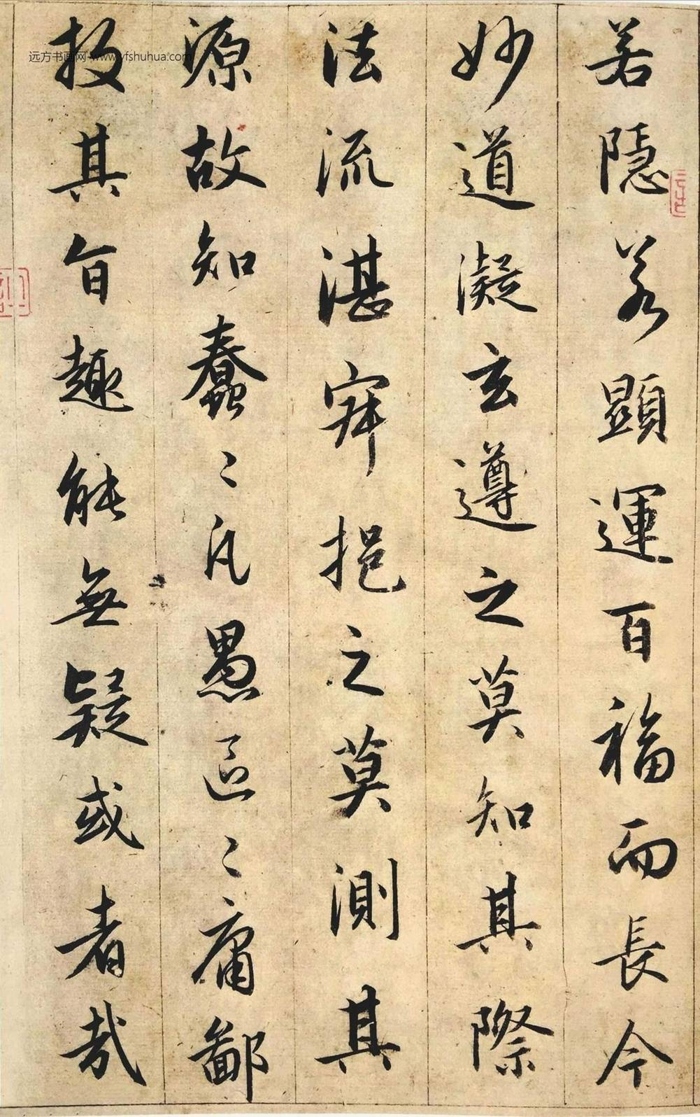 若隱若顯運百福而長今
妙道凝玄遵之莫知其際
法流湛寂挹之莫測其
源故知蠢〻凡愚區〻庸鄙
投其旨趣能無疑或者哉
远方书画网 www.yfshuhua.com